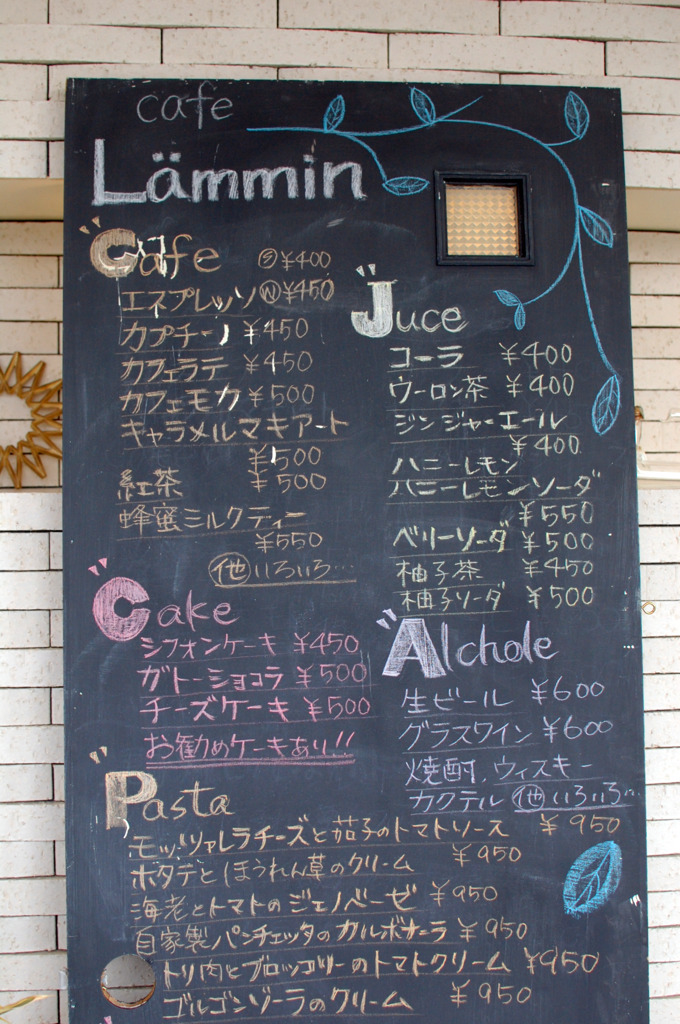 cafe
Lämmin
Cafe Ⓢ¥400
エスプレッソⓌ¥450
カプチーノ ¥450
カフェラテ ¥450
カフェモカ ¥500
キャラメルマキアート
¥500
紅茶 ¥500
蜂蜜ミルクティー
¥550
㊀他いろいろ…
Juce
コーラ ¥400
ウーロン茶 ¥400
ジンジャーエール
¥400
ハニーレモン
ハニーレモンソーダ
¥550
ベリーソーダ ¥500
柚子茶 ¥450
柚子ソーダ ¥500
Cake
シフォンケーキ ¥450
ガトーショコラ ¥500
チーズケーキ ¥500
お勧めケーキあり!!
Alchole
生ビール ¥600
グラスワイン ¥600
焼酎、ウィスキー
カクテル 他いろいろ…
Pasta
モッツァレラチーズと茄子のトマトソース ¥950
ホタテとほうれん草のクリーム ¥950
海老とトマトのジェノベーゼ ¥950
自家製パンチェッタのカルボナーラ ¥950
トリ肉とブロッコリーのトマトクリーム ¥950
ゴルゴンゾーラのクリーム ¥950